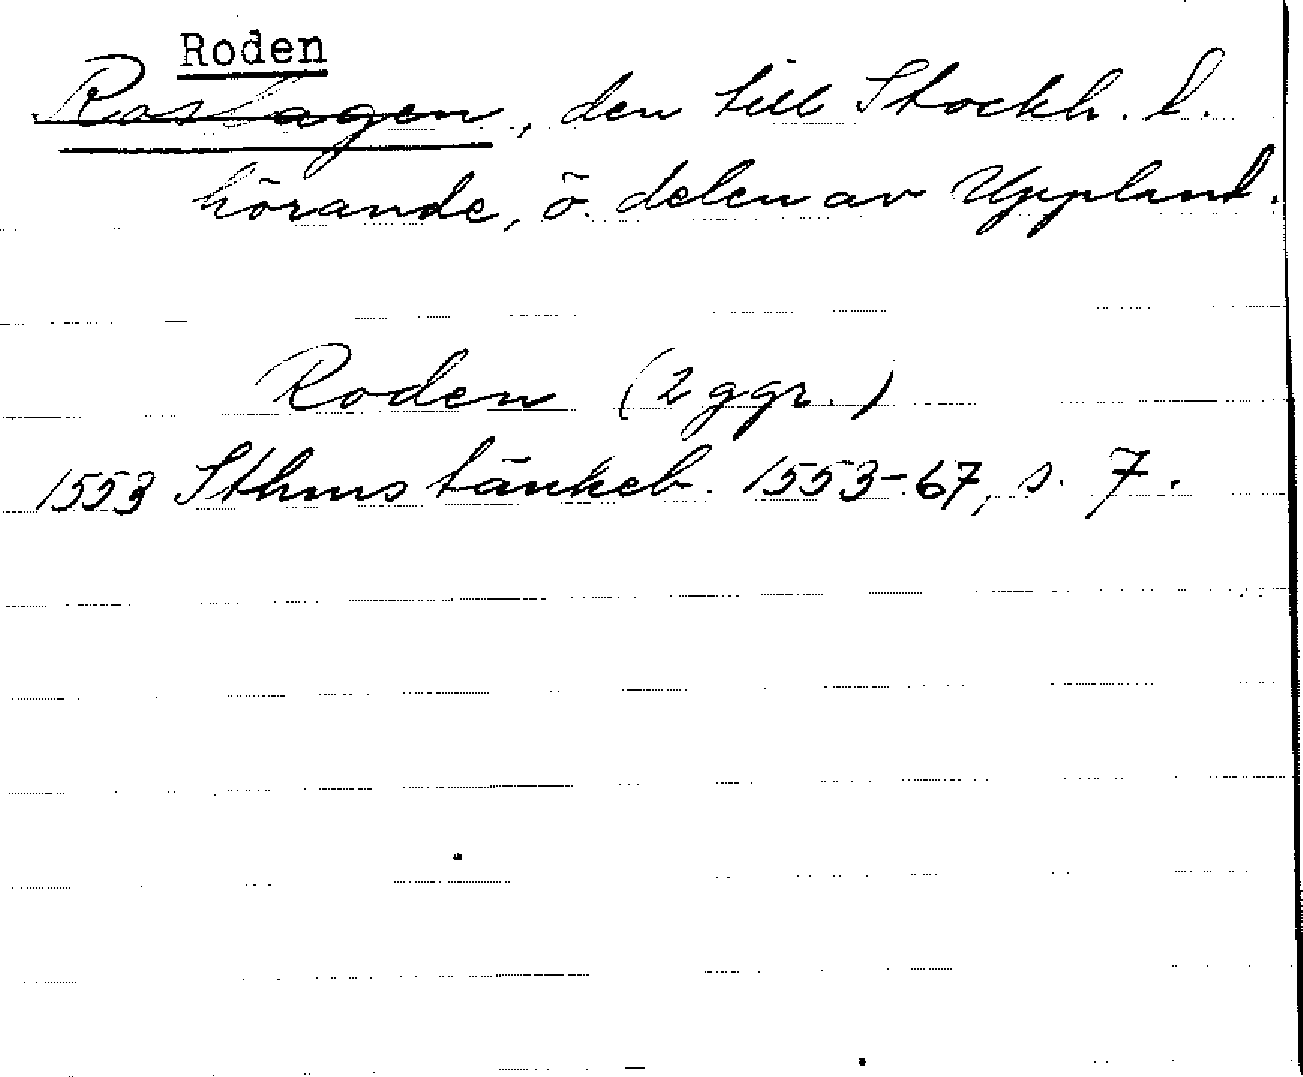 Roden
Roslagen, den till Stockh. l.
hörande, ö. delen av Uppland.
Roden (2 ggr.)
1553 Sthms tänkeb. 1553-67, s. 7.